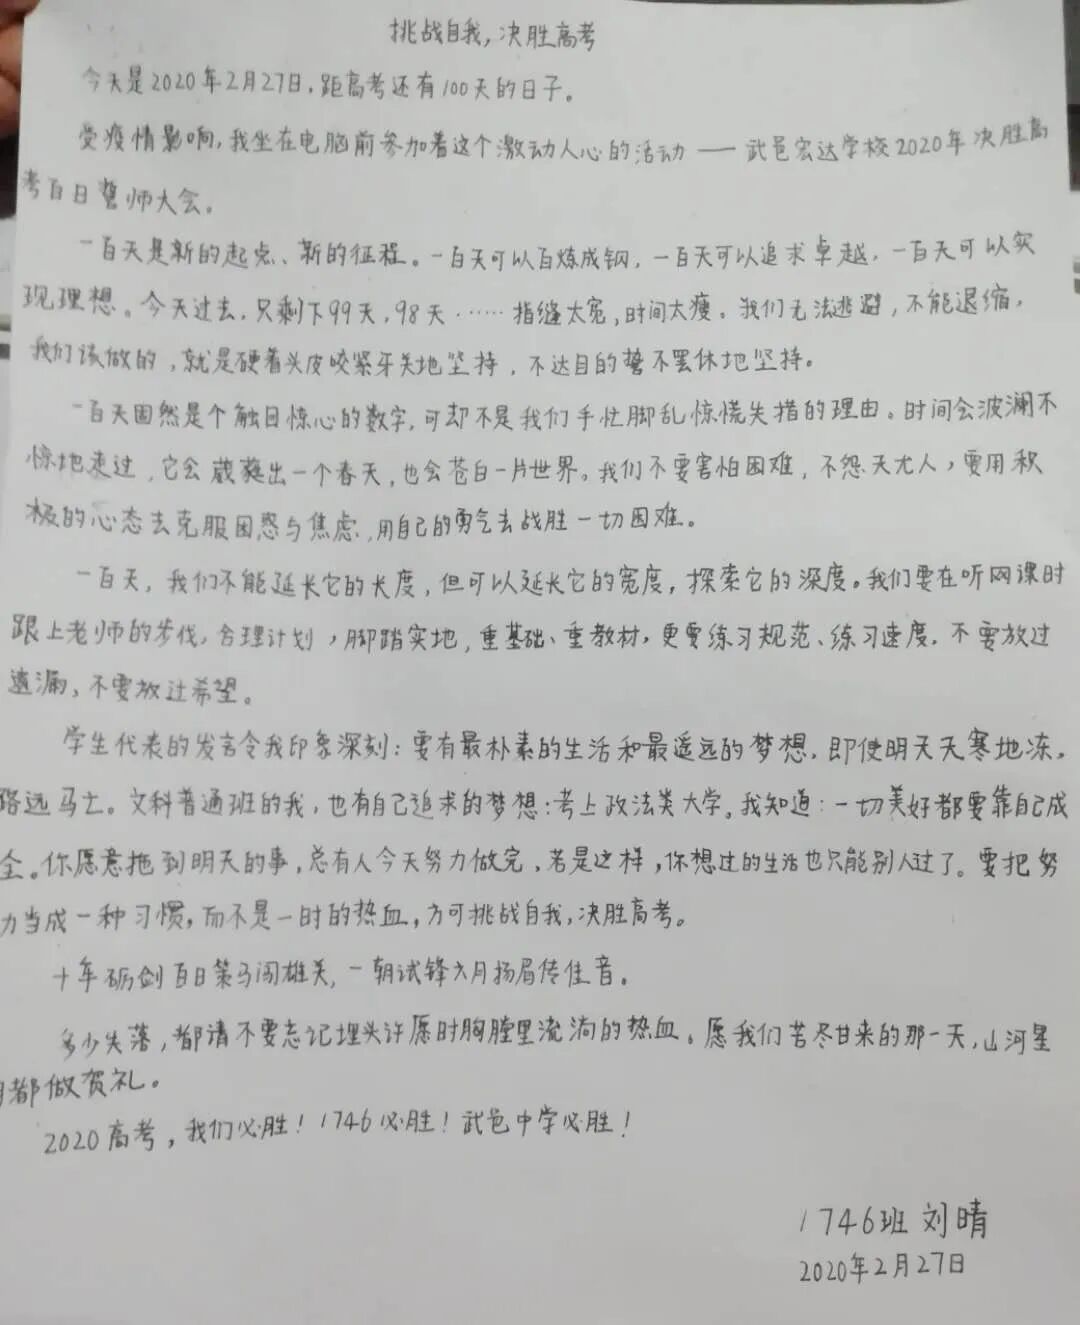 挑战自我，决胜高考
今天是2020年2月27日，距高考还有100天的日子。
受疫情影响，我坐在电脑前参加着这个激动人心的活动——武邑宏达学校2020年决胜高
考百日誓师大会。
一百天是新的起点、新的征程。一百天可以百炼成钢，一百天可以追求卓越，一百天可以实
现理想。今天过去，只剩下99天，98天……指缝太宽，时间太瘦。我们无法逃避，不能退缩，
我们该做的，就是硬着头皮咬紧牙关地坚持，不达目的誓不罢休地坚持。
一百天固然是个触目惊心的数字，可却不是我们手忙脚乱惊慌失措的理由。时间会波澜不
惊地走过，它会葳蕤出一个春天，也会苍白一片世界。我们不要害怕困难，不怨天尤人，要用积
极的心态去克服困惑与焦虑，用自己的勇气去战胜一切困难。
一百天，我们不能延长它的长度，但可以延长它的宽度，探索它的深度。我们要在听网课时
跟上老师的步伐，合理计划，脚踏实地，重基础、重教材，更要练习规范、练习速度，不要放过
遗漏，不要放过希望。
学生代表的发言令我印象深刻：要有最朴素的生活和最遥远的梦想，即使明天天寒地冻，
路远马亡。文科普通班的我，也有自己追求的梦想：考上政法类大学。我知道：一切美好都要靠自己成
全。你愿意拖到明天的事，总有人今天努力做完，若是这样，你想过的生活也只能别人过了。要把努
力当成一种习惯，而不是一时的热血，方可挑战自我，决胜高考。
十年砺剑百日策马闯雄关，一朝试锋六月扬眉传佳音。
多少失落，都请不要忘记埋头许愿时胸膛里流淌的热血。愿我们苦尽甘来的那一天，山河星
月都做贺礼。
2020高考，我们必胜！1746必胜！武邑中学必胜！
1746班 刘晴
2020年2月27日